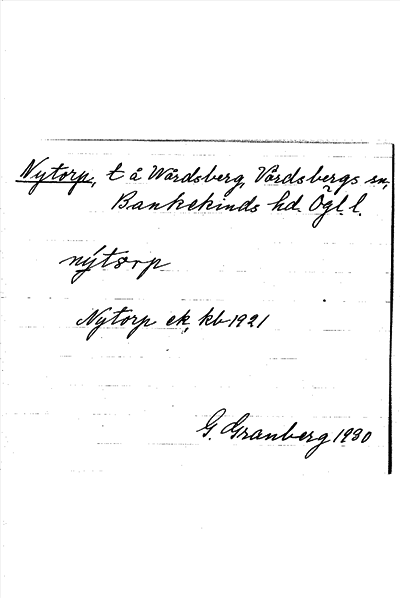 Nytorp, t å Wårdsberg, Vårdsbergs sn,
Bankekinds hd. Ögl. l.
nýtorp
Nytorp ek, kb 1921
G. Granberg 1930